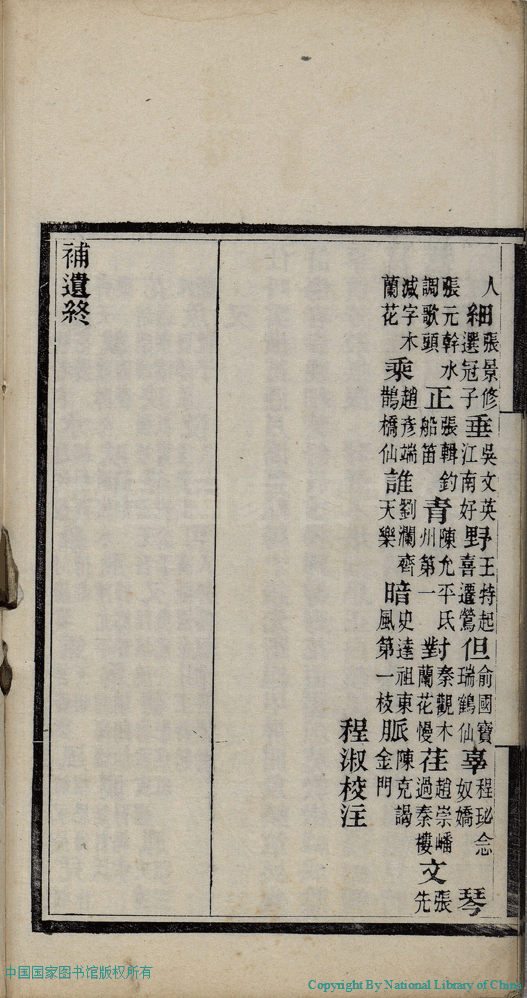 人細張景修選冠子垂吳文英江南好野王特起喜遷鶯但俞國寶瑞鶴仙辜程珌念奴嬌琴
張元幹水調歌頭正張輯釣船笛青陳允平氐州第一對秦觀木蘭花慢荏趙崇嶓過秦樓文張先
減字木蘭花乘趙彥端鵲橋仙誰劉瀾齊天樂暗史達祖東風第一枝脈陳克謁金門
程淑校注
補遺終
中国国家图书馆版权所有
Copyright By National Library of China